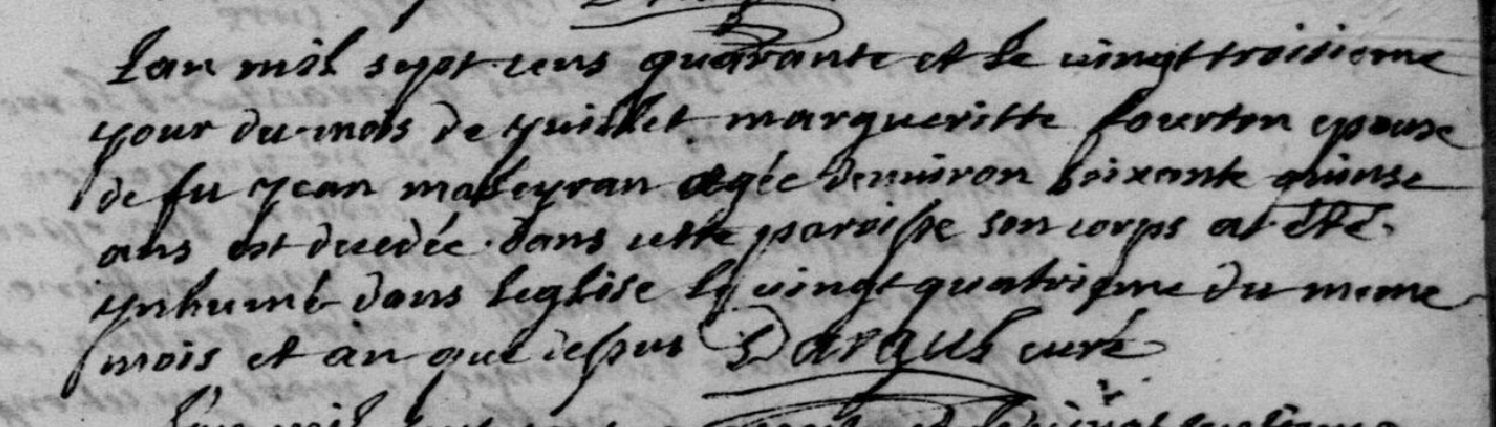 Lan mil sept cens quarante et le vingt troisieme
your du mois de yuillet margueritte fourton epouse
de fu yean maleyran agée denuiron soixante quinse
ans est decedée dans cette paroisse son corps at été
ynhumé dans leglise le vingt quatrieme du meme
mois et an que dessus Darqus curé
Lan mil